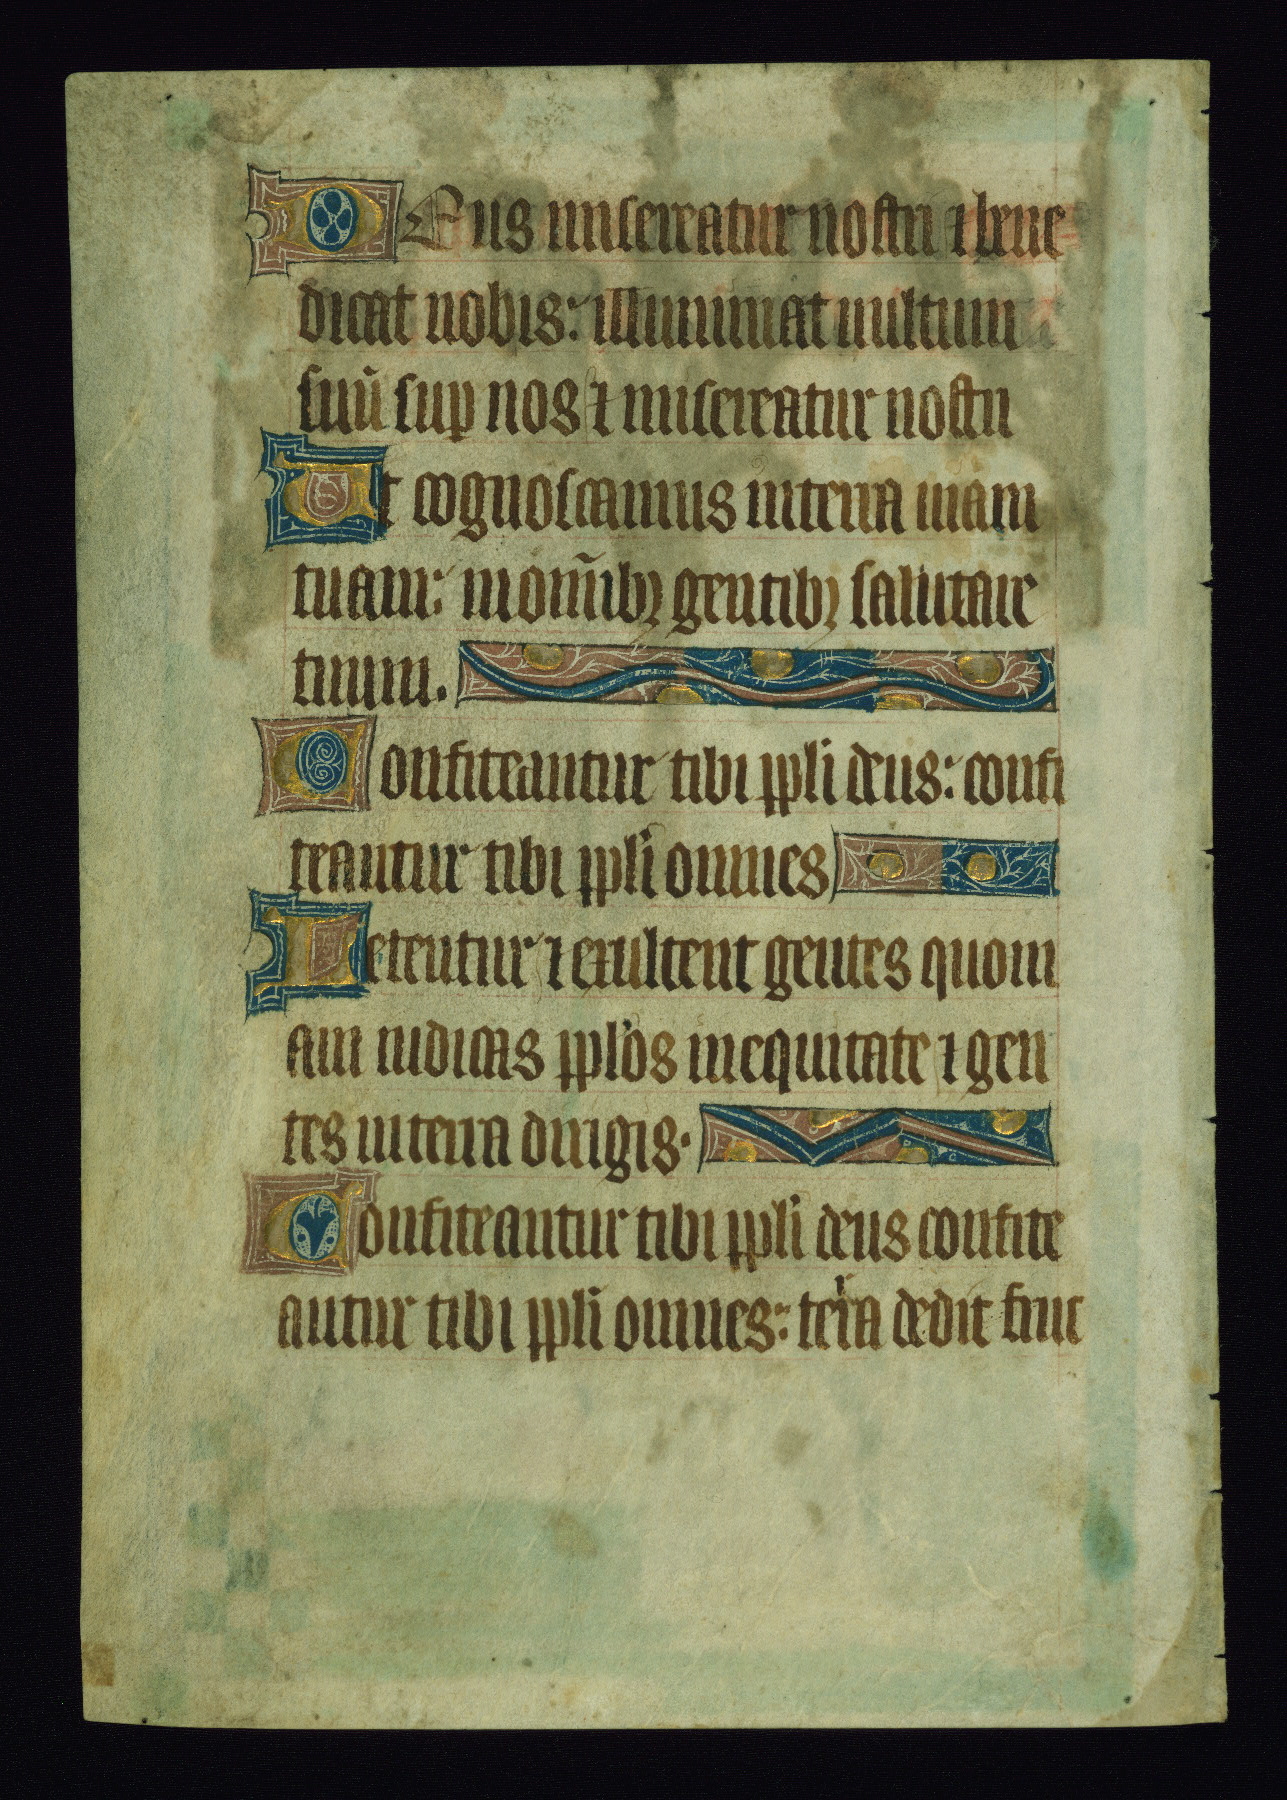 DEus misereatur nostri ⁊ bene
dicat nobis: illuminat uultum
suū sup nos ⁊ misereatur nostri
Ut cognoscamus interra uiam
tuam: inom̄ibꝫ gentibꝫ salutare
tuum.
Confiteantur tibi ppli deus: confi
teantur tibi ppli omnes
Letentur ⁊ exultent gentes quoni
am iudicas pplos inequitate ⁊ gen
tes interra dirigis.
Confiteantur tibi ppli deus confite
antur tibi ppli omnes: terra dedit fruc